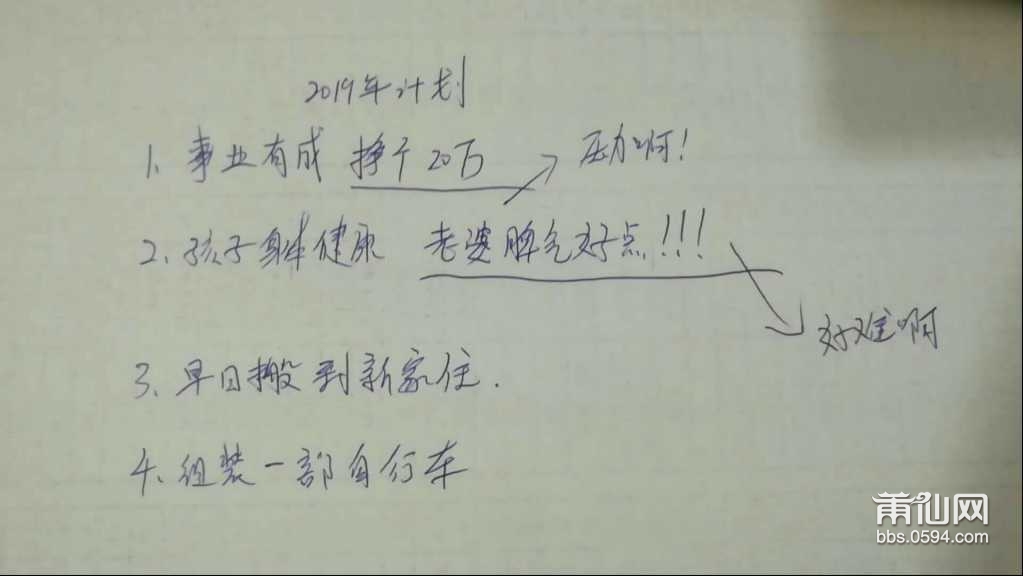 2019年计划
1、事业有成 挣个20万 压力啊!
2、孩子身体健康 老婆脾气好点!!!
好难啊
3、早日搬到新家住.
4、组装一部自行车
莆仙网
bbs.0594.com